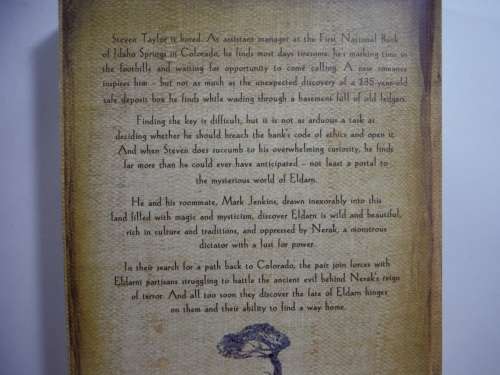 Steven Taylor is bored. As assistant manager at the First National Bank
of Idaho Springs in Colorado, he finds most days tiresome; he's marking time in
the foothills and waiting for opportunity to come calling. A new romance
inspires him – but not as much as the unexpected discovery of a 135-year-old
safe deposit box he finds while wading through a basement full of old ledgers.
Finding the key is difficult, but it is not as arduous a task as
deciding whether he should breach the bank's code of ethics and open it.
And when Steven does succumb to his overwhelming curiosity, he finds
far more than he could ever have anticipated – not least a portal to
the mysterious world of Eldarn.
He and his roommate, Mark Jenkins, drawn inexorably into this
land filled with magic and mysticism, discover Eldarn is wild and beautiful,
rich in culture and traditions, and oppressed by Nerak, a monstrous
dictator with a lust for power.
In their search for a path back to Colorado, the pair join forces with
Eldarni partisans struggling to battle the ancient evil behind Nerak's reign
of terror. And all too soon they discover the fate of Eldarn hinges
on them and their ability to find a way home.